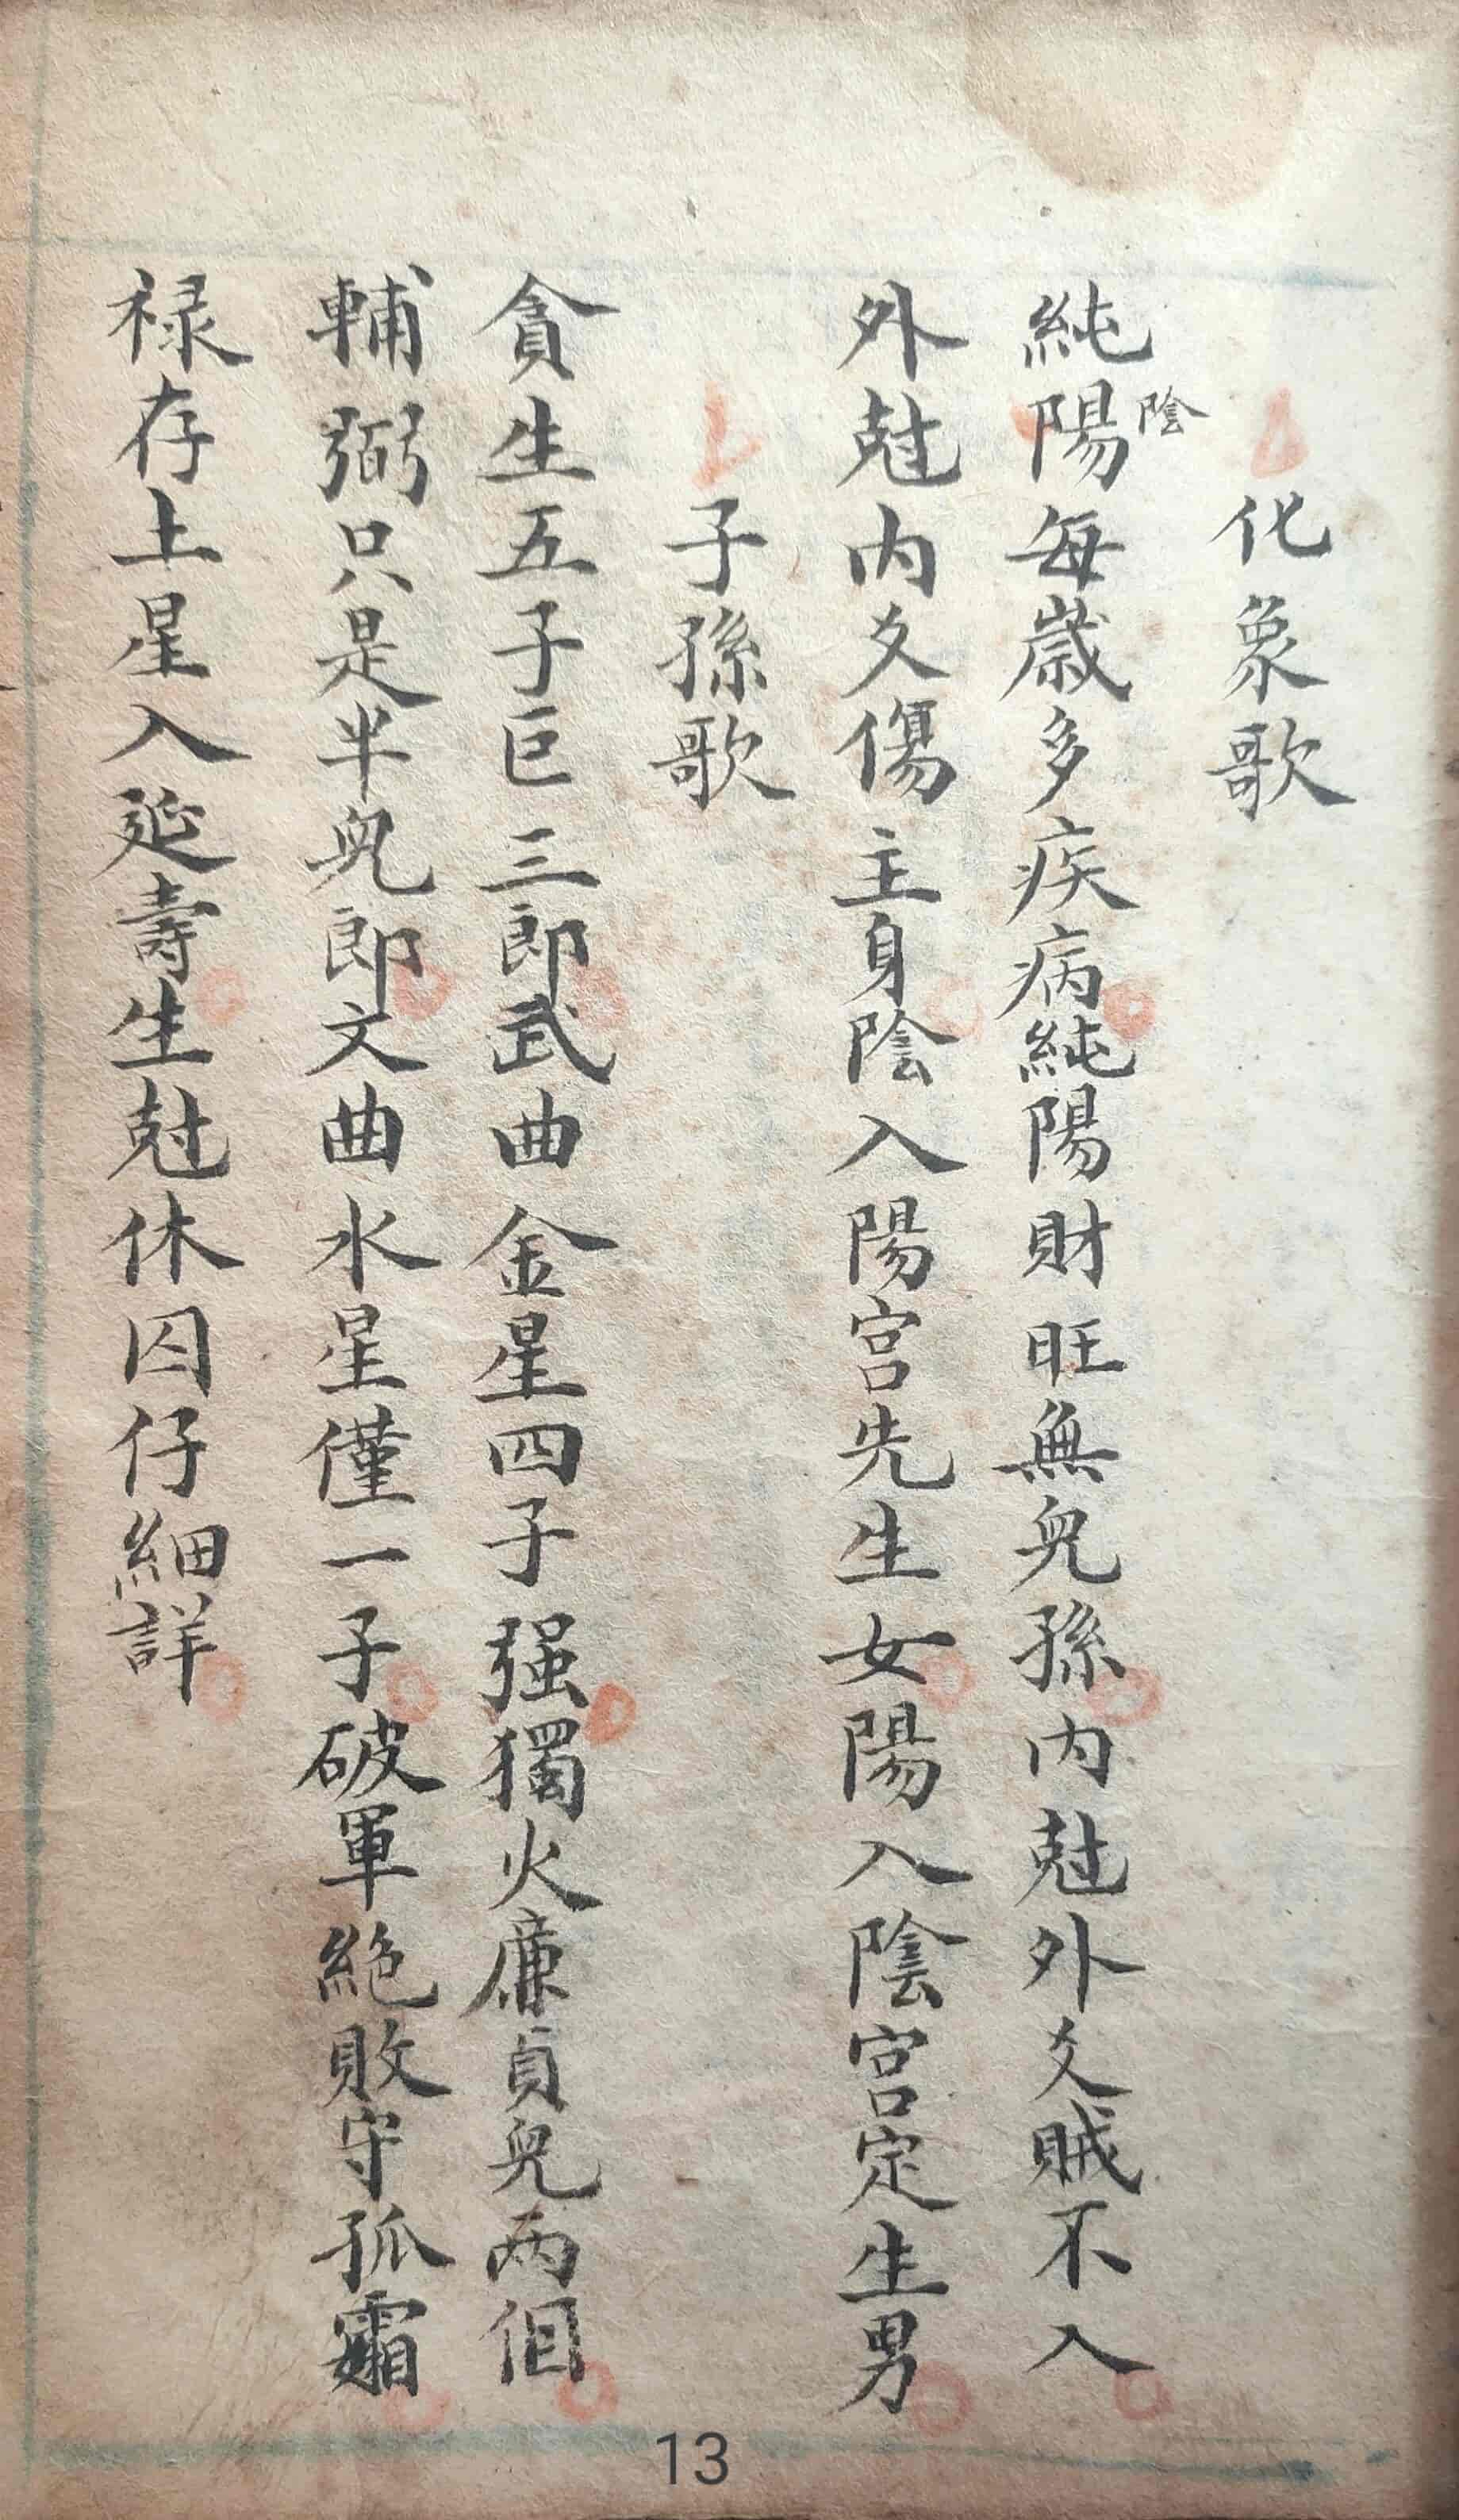 化象歌
純陽陰每歲多疾病純陽財旺無兒孫内尅外爻賊不入
外尅内爻傷主身陰入陽宮先生女陽入陰宮定生男
子孫歌
貪生五子巨三郎武曲金星四子强獨火廉貞兒兩個
輔弼只是半兒郎文曲水星僅一子破軍絶敗守孤霜
禄存土星入延壽生尅休囚仔細詳
13